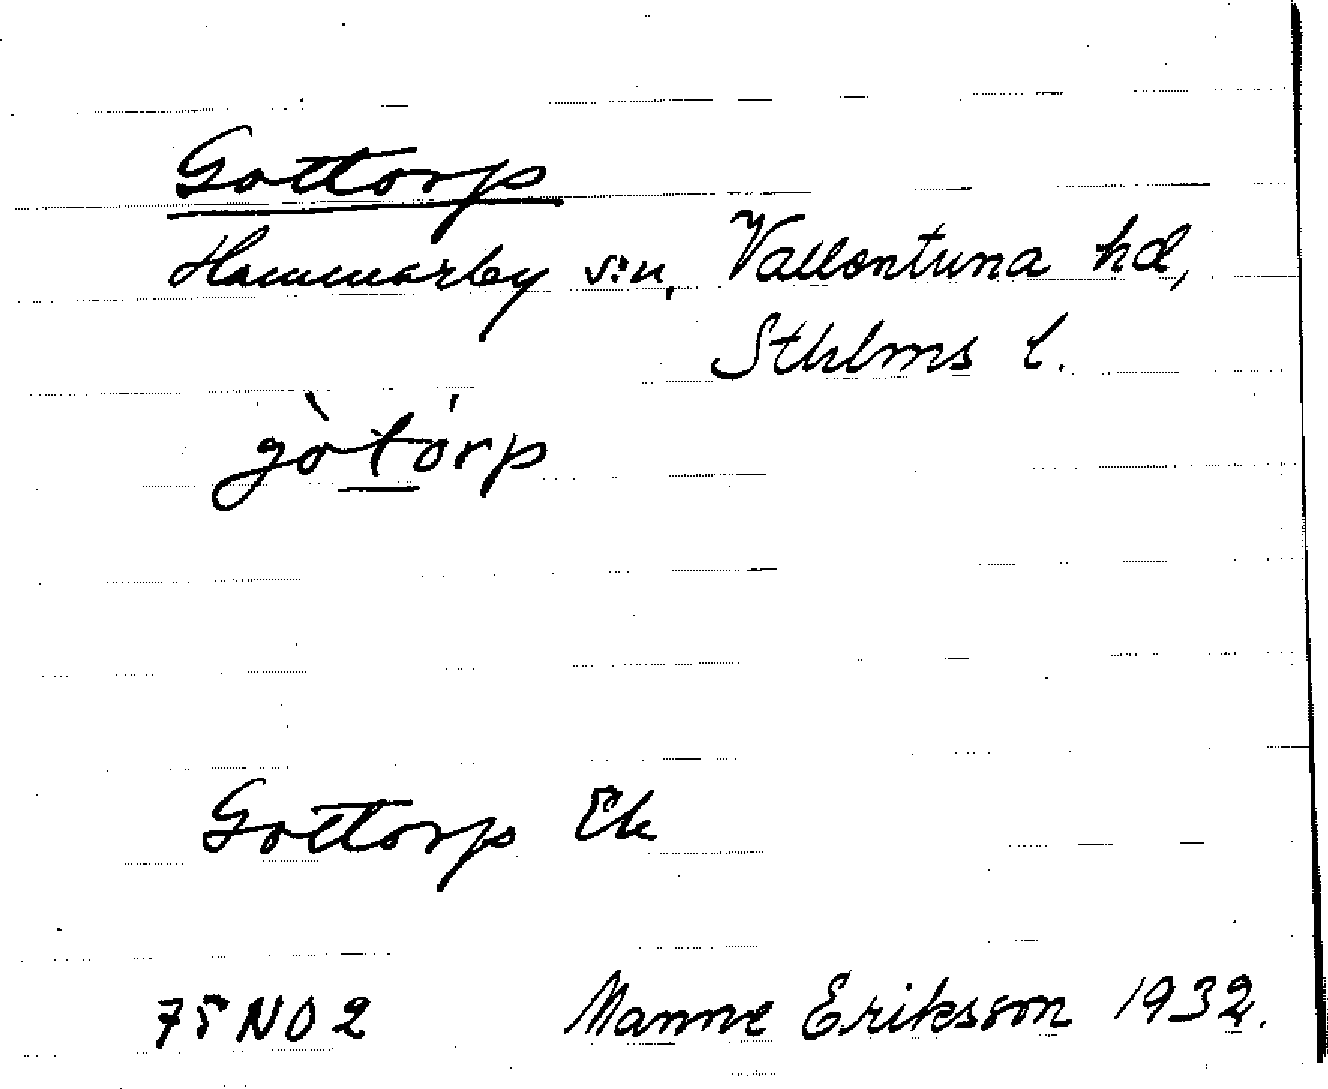 Gottorp
Hammarby s:n, Vallentuna hd,
Sthlms l.
gòtórp
Gottorp Ek
75 NO 2 Manne Eriksson 1932.